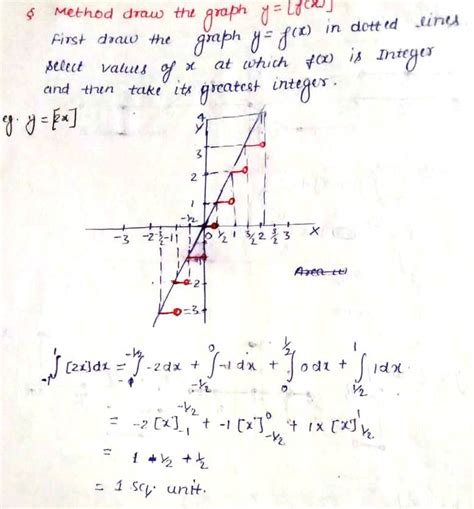 § Method draw the graph y = [f(x)]
First draw the graph y = f(x) in dotted lines
select values of x at which f(x) is Integer
and then take its greatest integer.
eg. y = [2x]
4
y
3
2
1
-1/2
-3 -2 -3/2 -1 0 1/2 1 3/2 2 5/2 3 X
-1
-2
-3
Area
-1∫1 [2x]dx = -1∫-1/2 -2dx + -1/2∫0 -1dx + 0∫1/2 0dx + 1/2∫1 1dx
= -2[x]-1^-1/2 + -1[x]-1/2^0 + 1x[x]1/2^1
= 1 + 1/2 + 1/2
= 1 sq. unit.